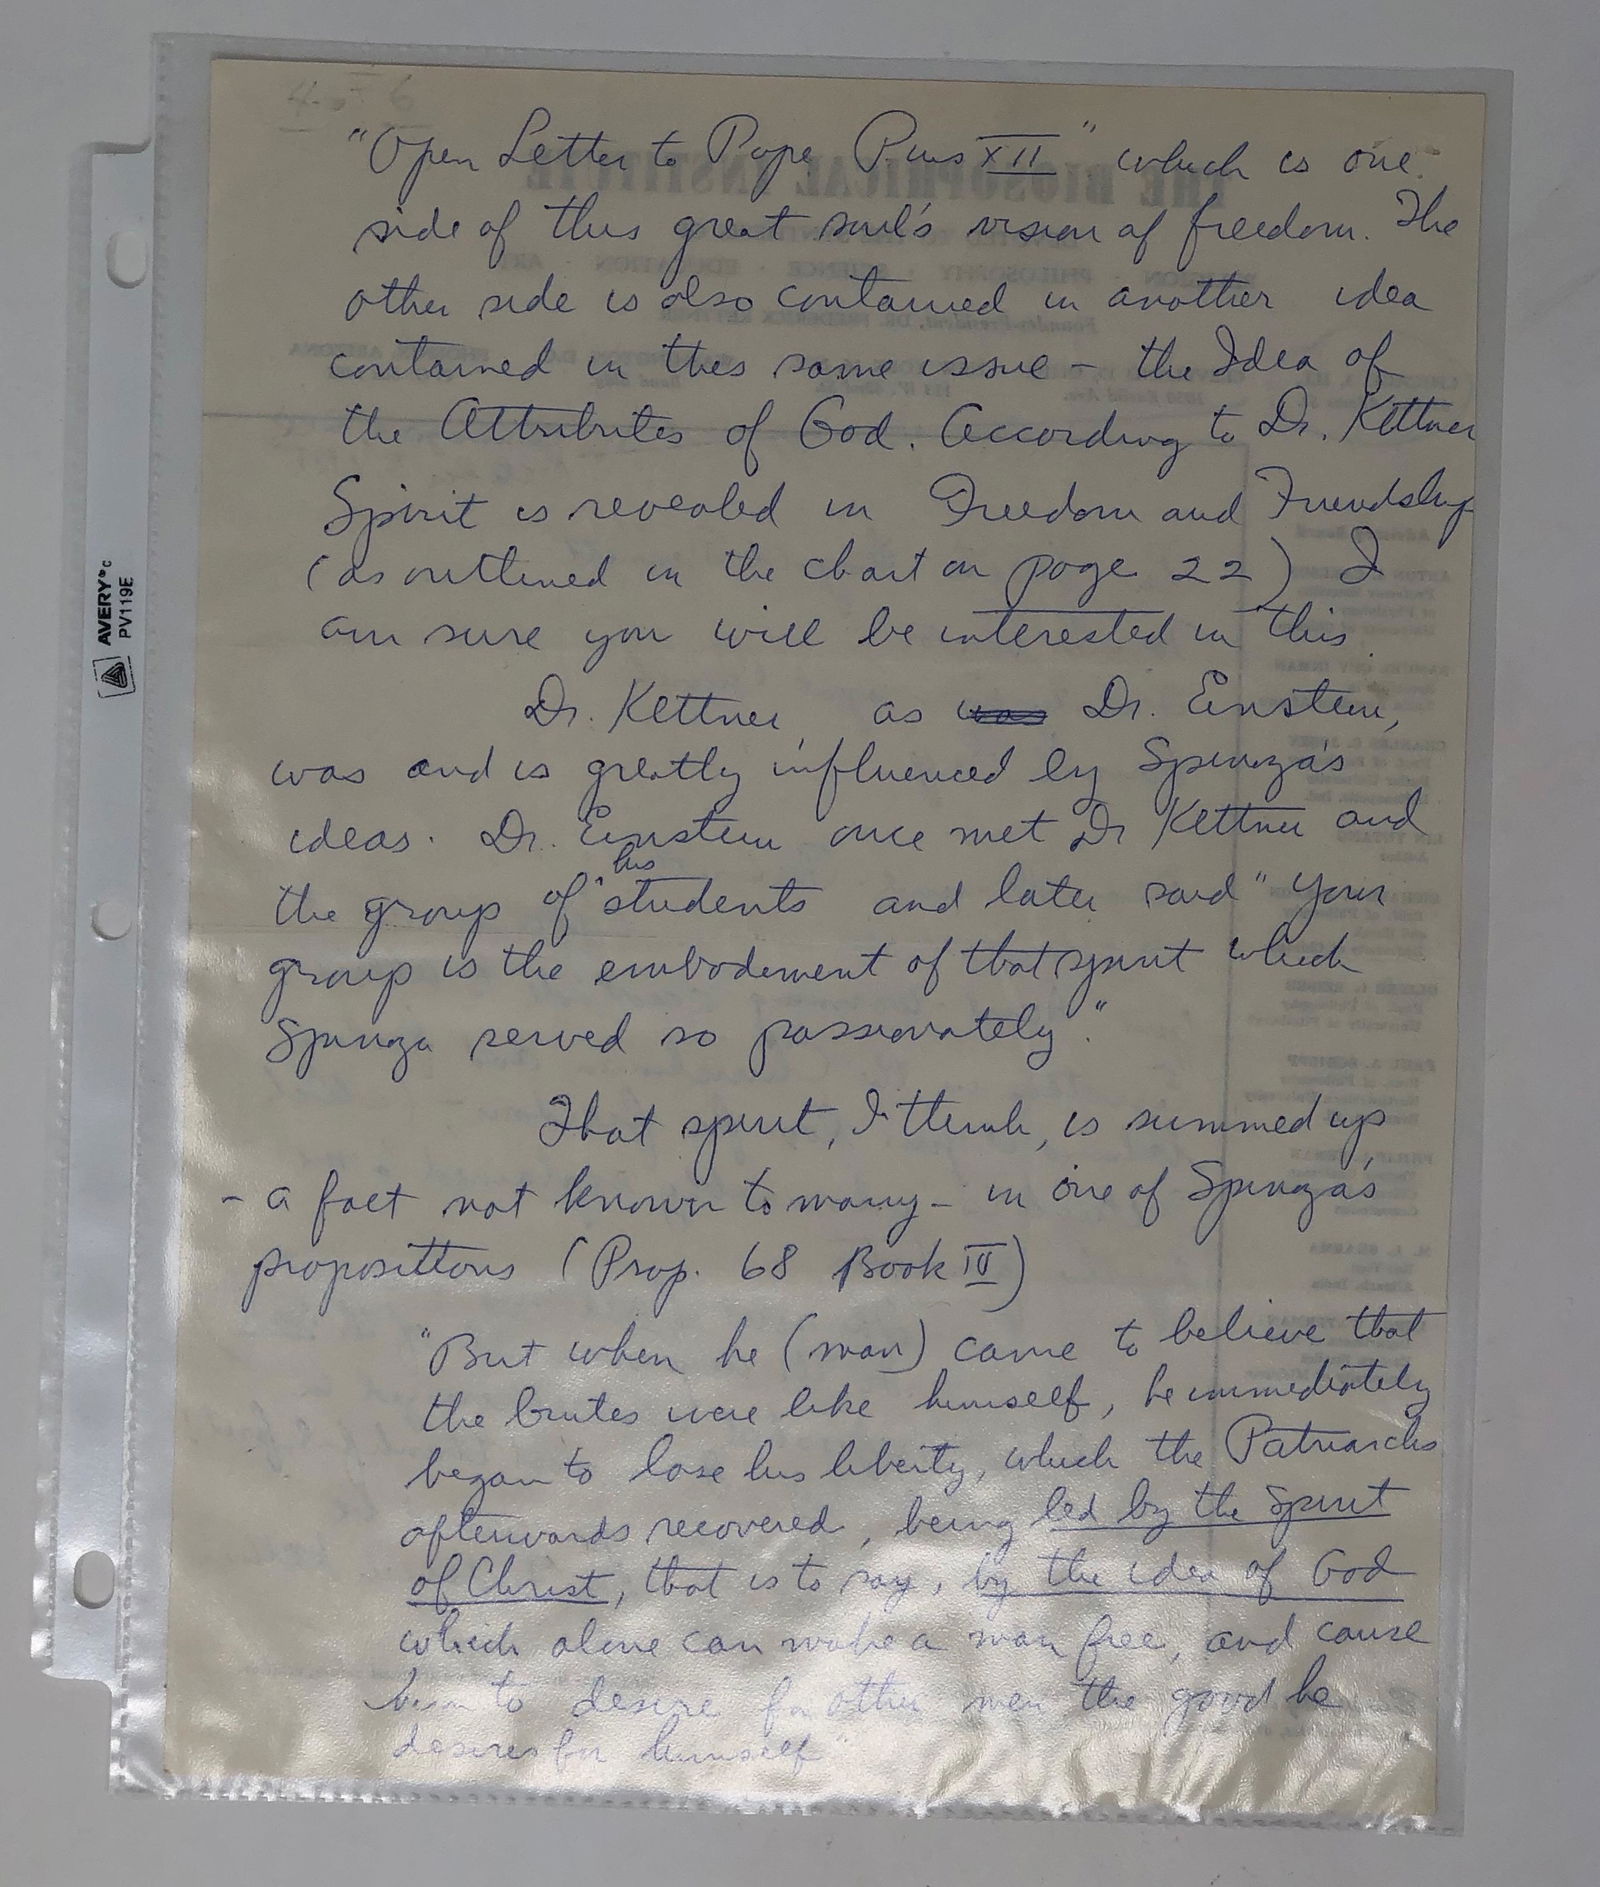 4 - 6
"Open Letter to Pope Pius XII" which is one
side of this great soul's vision of freedom. The
other side is also contained in another idea
contained in this same issue – the Idea of
the Attributes of God. According to Dr. Kettner
Spirit is revealed in Freedom and Friendship
(as outlined in the chart on page 22) I
am sure you will be interested in this.
Dr. Kettner, as was Dr. Einstein,
was and is greatly influenced by Spinoza's
ideas. Dr. Einstein once met Dr Kettner and
the group of his students and later said "Your
group is the embodiment of that spirit which
Spinoza served so passionately."
That spirit, I think, is summed up,
- a fact not known to many - in one of Spinoza's
propositions (Prop. 68 Book IV)
"But when he (man) came to believe that
the brutes were like himself, he immediately
began to lose his liberty, which the Patriarchs
afterwards recovered, being led by the Spirit
of Christ, that is to say, by the idea of God
which alone can make a man free, and cause
him to desire for other men the good he
desires for himself"
AVERY
PV119E
THE BIOSOPHICAL INSTITUTE